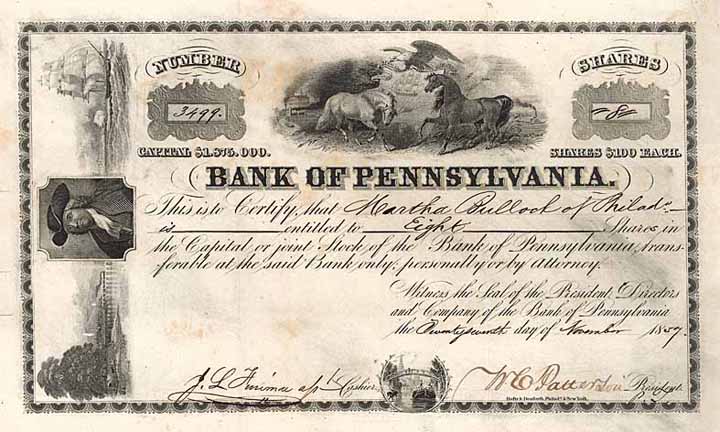 NUMBER
3499.
CAPITAL $1.875.000.
SHARES
8
SHARES $100 EACH.
BANK OF PENNSYLVANIA.
This is to Certify, that Martha Bullock of Philada.
is entitled to Eight Shares, in
the Capital or joint Stock of the Bank of Pennsylvania, trans-
ferable at the said Bank only, personally or by Attorney.
Witness the Seal of the President, Directors
and Company of the Bank of Pennsylvania
the Twenty seventh day of November 1857.
J. L Cashier
W C Patterson President
Danforth, Philada. & New York.